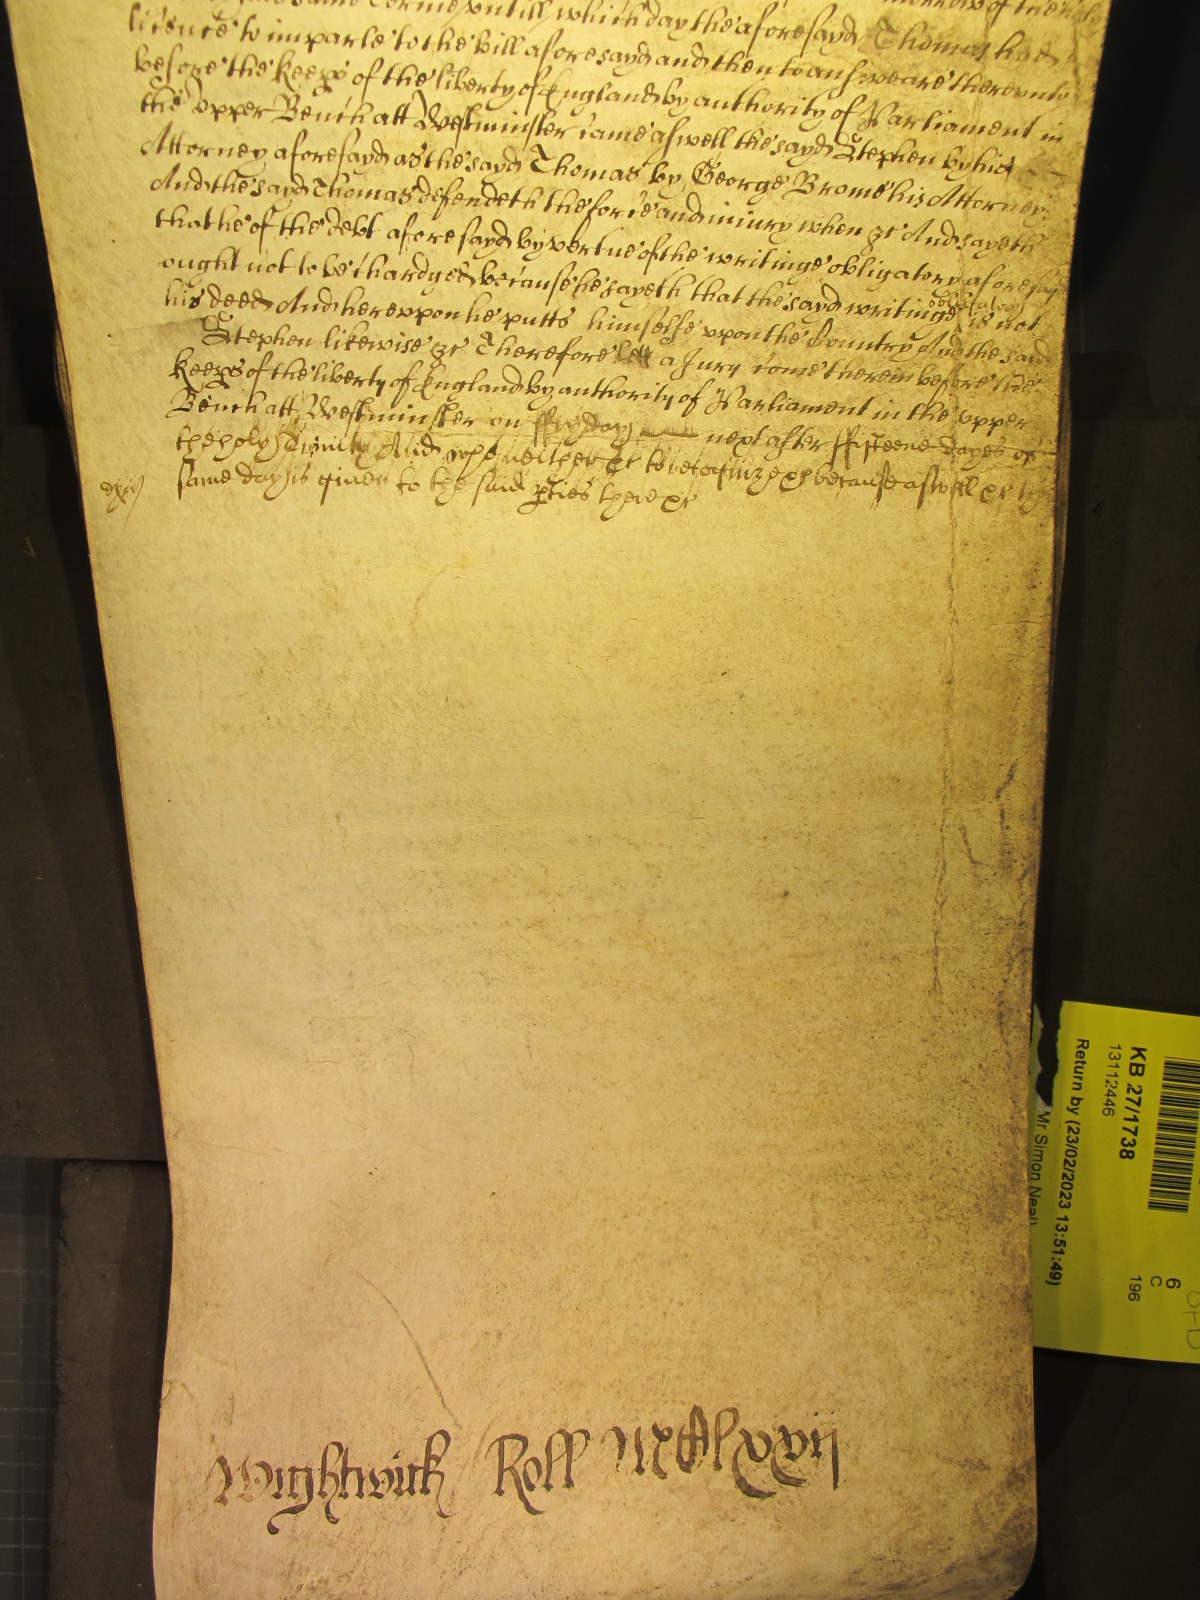 same Terme untill which day the aforesayd Thomas had
licence to imparle to the bill aforesayd and then to answeare thereunto
before the keeps of the liberty of England by authority of Parliament in
the Upper Bench att Westminster came aswell the sayd Stephen by his
Attorney aforesayd as the sayd Thomas by George Brome his Attorney
And the sayd Thomas defendeth the force and injury when &c And sayeth
that he of the debt aforesayd by vertue of the writinge obligatory aforesayd
ought not to be chardged because he sayeth that the sayd writinge obligatory is not
his deed And hereupon he putts himselfe upon the Country And the said
Stephen likewise &c Therefore lett a Jury come therein before the
keeps of the liberty of England by authority of Parliament in the upper
Bench att Westminster on ffryday next after ffifteene dayes of
the holy Trinity And who neither &c to recognize &c because aswell &c the
same day is given to the said pties there &c
Wightwick Roll
KB 27/1738
13112446
Return by (23/02/2023 13:51:49)
Mr Simon Neal)
6
C
196